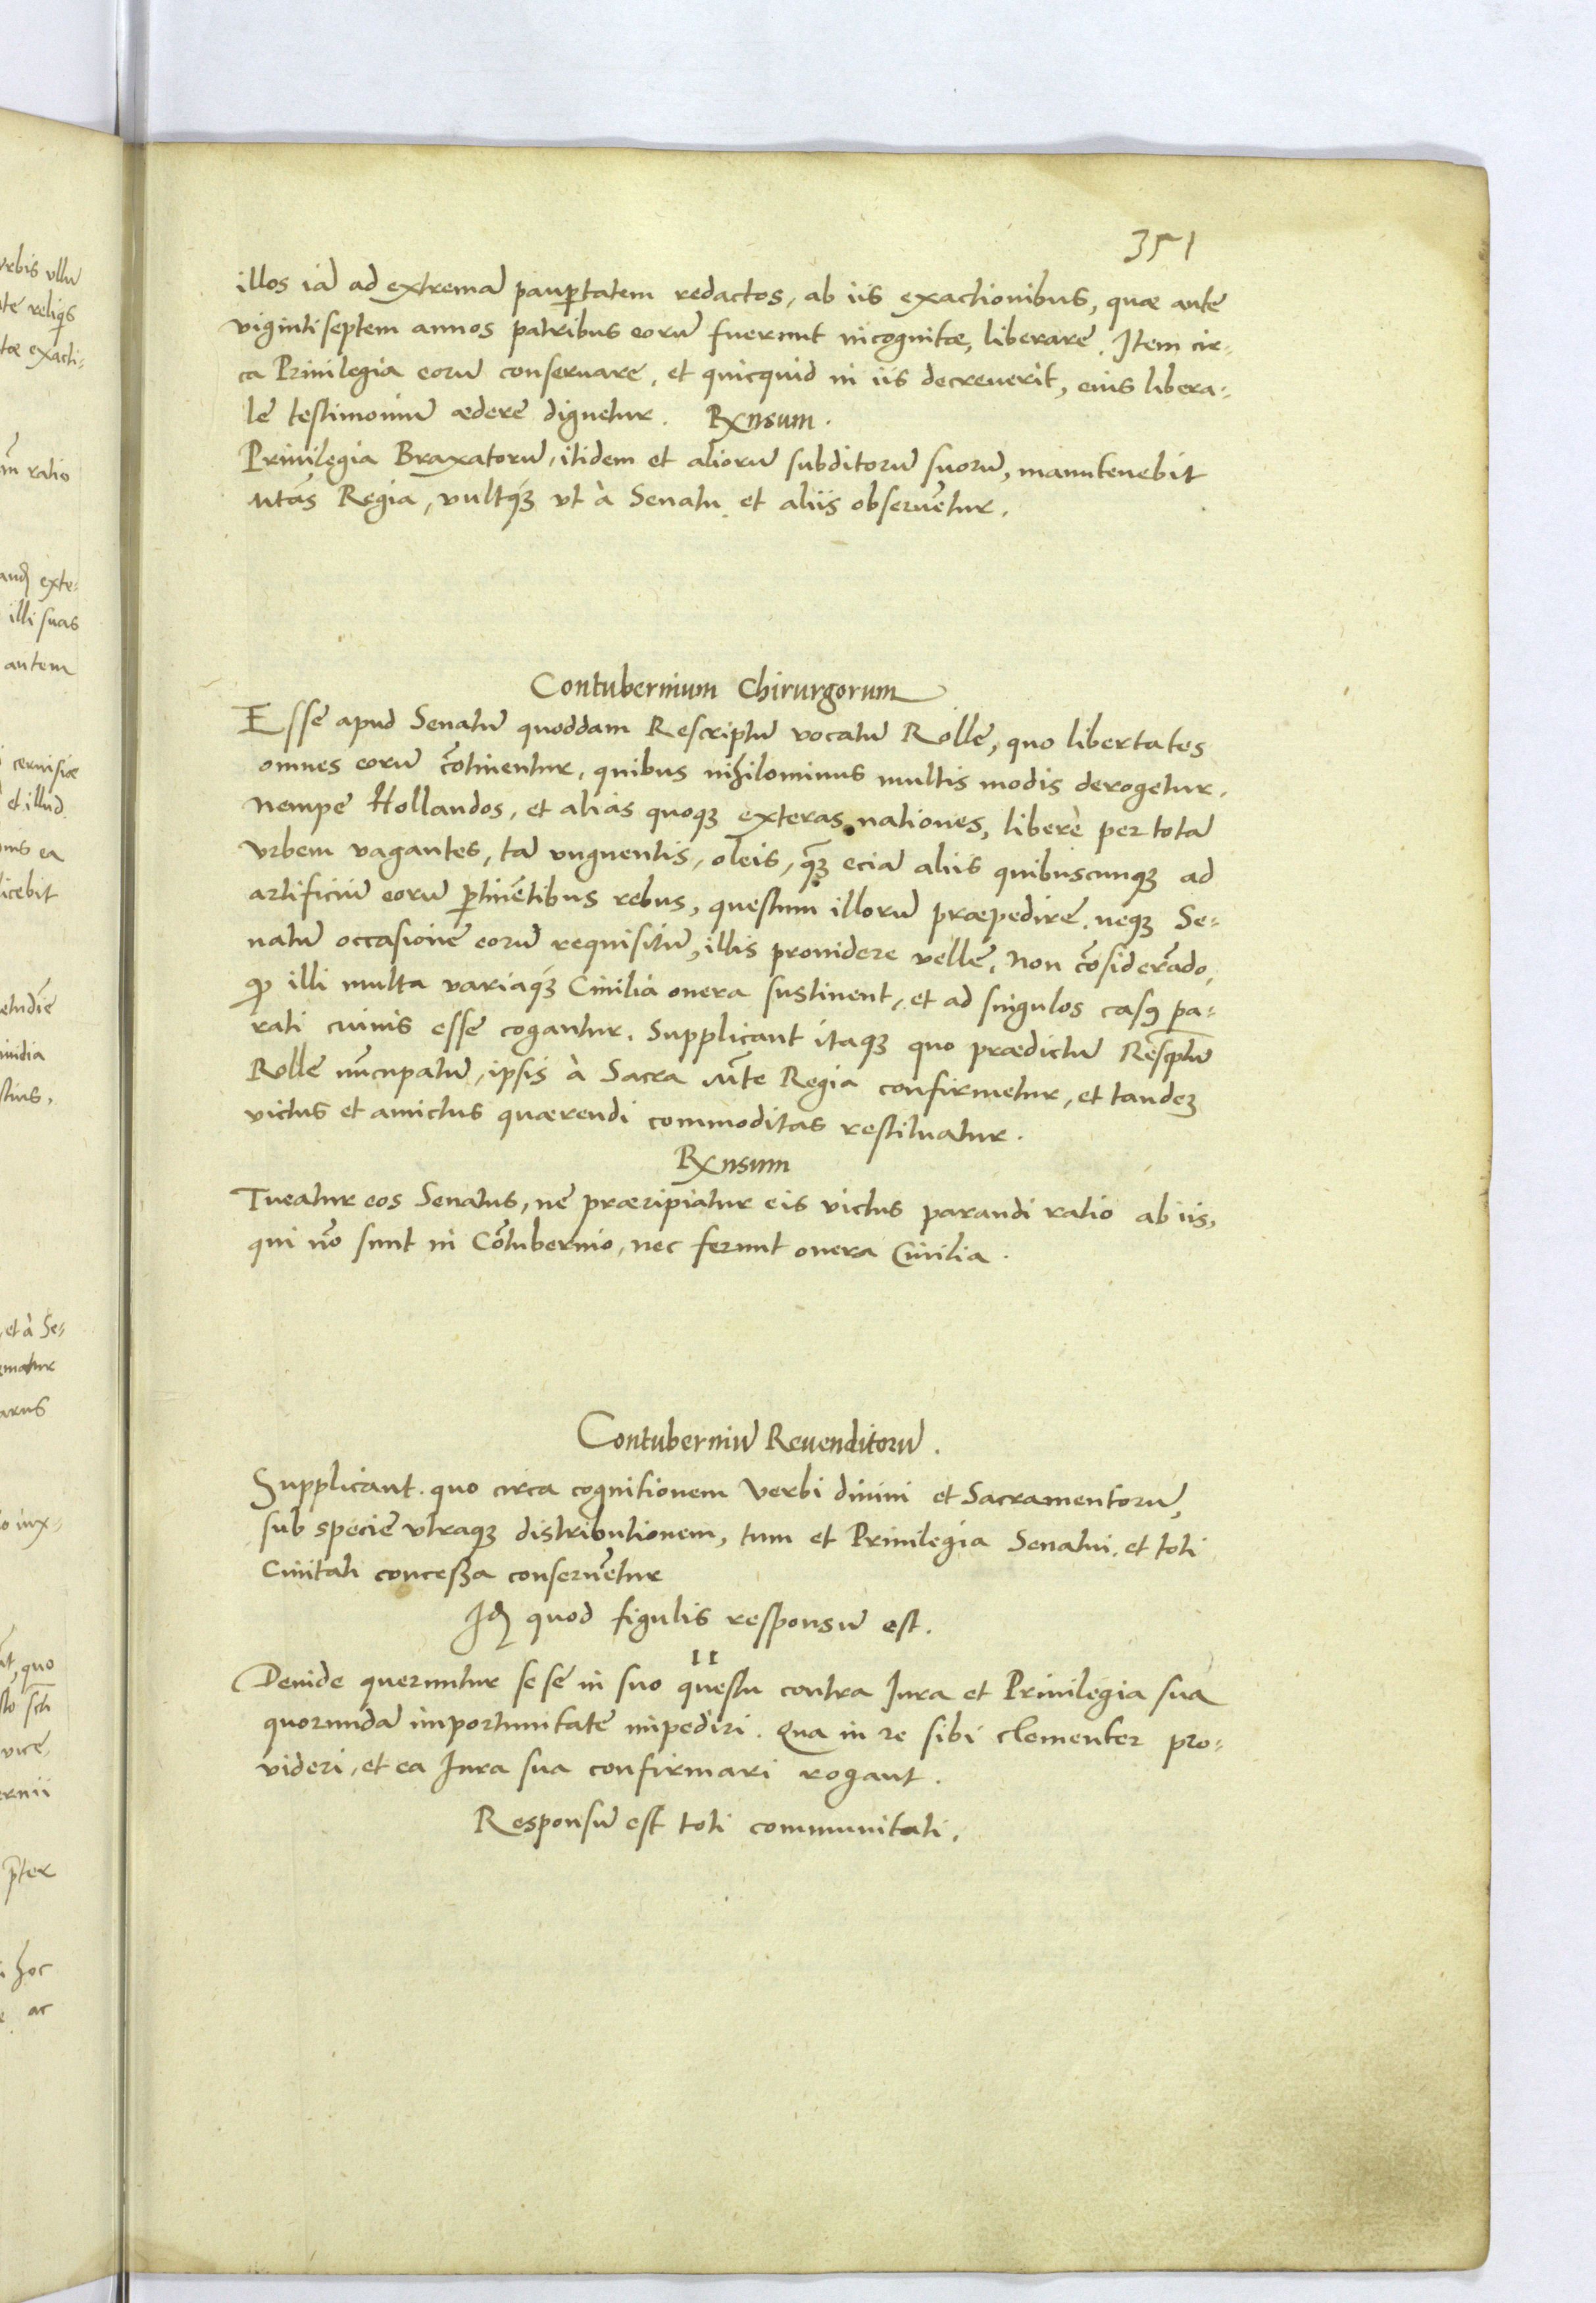 351
illos iā ad extremā paupertatem redactos, ab iis exactionibus, quæ ante
viginti septem annos patribus eorū fuerunt incognitæ, liberare. Item cir-
ca Priuilegia eorū conseruare, et quicquid in iis decreuerit, eius libera-
le testimoniū ædere dignetur. Rxnsum.
Priuilegia Braxatorū, itidem et aliorū subditorū suorū, manutenebit
Mtás Regia, vultq́ꝫ vt à Senatu et aliis obseruẽtur.
Contubernium Chirurgorum
Esse apud Senatū quoddam Rescriptū vocatū Rolle, quo libertates
omnes eorū cõtinentur, quibus nihilominus multis modis derogetur.
Nempe Hollandos, et alias quoqꝫ exteras nationes, libere per totā
vrbem vagantes, tā vnguentis, oleis, quā̃ eciā aliis quibuscunqꝫ ad
artificiū eorū ꝑtinẽtibus rebus, questum illorū præpedire. neqꝫ Se-
natū occasione eorū requisitū, illis prouidere velle. Non cõsiderãdo,
ꝙ illi multa variaq́ꝫ Ciuilia onera sustinent, et ad singulos casꝰ pa-
rati cuiuis esse cogantur. Supplicant itaqꝫ quo prædictū Rescptū
Rolle nũcupatū, ipsis à Sacra Mte Regia confirmetur, et tandeꝫ
victus et amictus quærendi commoditas restituatur.
Rxnsum
Tueatur eos Senatus, ne præripiatur eis victus parandi ratio ab iis,
qui nõ sunt in Cõtubernio, nec ferunt onera Ciuilia.
Contuberniū Reuenditorū.
Supplicant. quo circa cognitionem Verbi diuini et Sacramentorū,
sub specie vtraqꝫ distributionem, tum et Priuilegia Senatui, et toti
Ciuitati concessa conseruẽtur
Idꝫ quod figulis responsū est.
II
Deinde queruntur sese in suo questu contra Iura et Priuilegia sua
quorundā importunitate impediri. Qua in re sibi clementer pro-
videri, et ea Iura sua confirmari rogant.
Responsū est toti communitati.